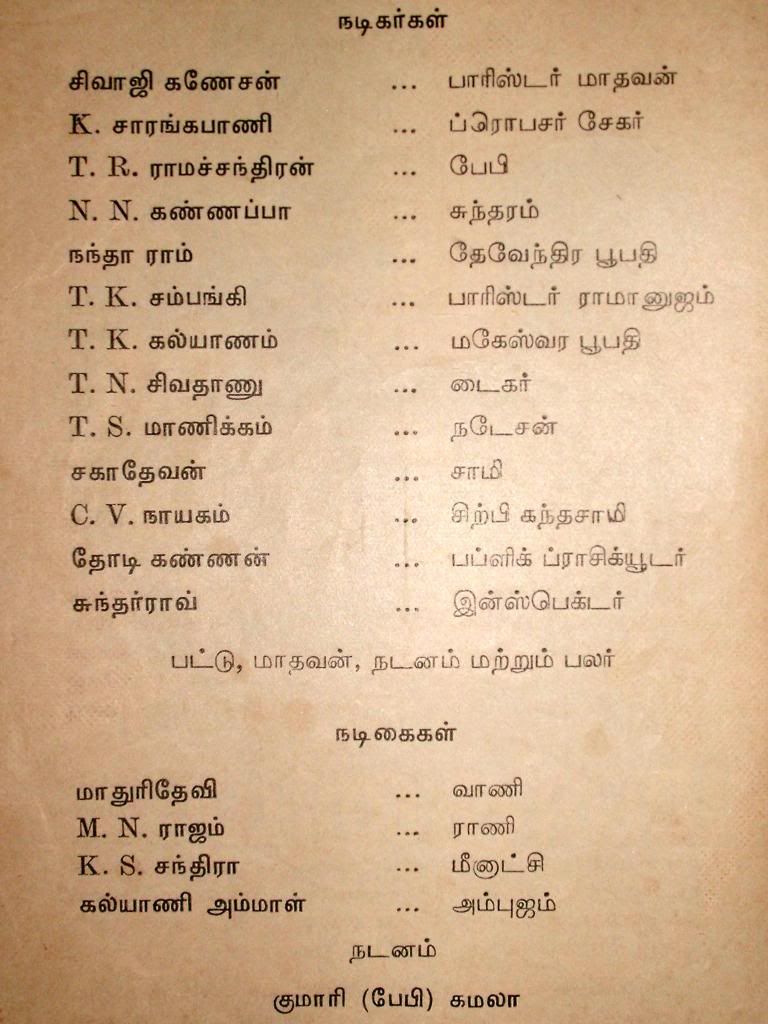 நடிகர்கள்
சிவாஜி கணேசன் ... பாரிஸ்டர் மாதவன்
K. சாரங்கபாணி ... ப்ரொபசர் சேகர்
T. R. ராமச்சந்திரன் ... பேபி
N. N. கண்ணப்பா ... சுந்தரம்
நந்தா ராம் ... தேவேந்திர பூபதி
T. K. சம்பங்கி ... பாரிஸ்டர் ராமானுஜம்
T. K. கல்யாணம் ... மகேஸ்வர பூபதி
T. N. சிவதாணு ... டைகர்
T. S. மாணிக்கம் ... நடேசன்
சகாதேவன் ... சாமி
C. V. நாயகம் ... சிற்பி கந்தசாமி
தோடி கண்ணன் ... பப்ளிக் ப்ராசிக்யூடர்
சுந்தர்ராவ் ... இன்ஸ்பெக்டர்
பட்டு, மாதவன், நடனம் மற்றும் பலர்
நடிகைகள்
மாதுரிதேவி ... வாணி
M. N. ராஜம் ... ராணி
K. S. சந்திரா ... மீனாட்சி
கல்யாணி அம்மாள் ... அம்புஜம்
நடனம்
குமாரி (பேபி) கமலா